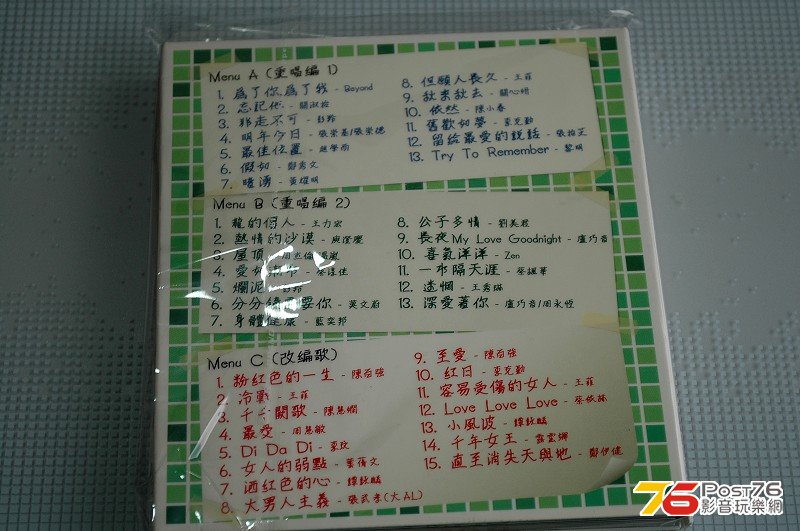 Menu A (重唱編 1)
1. 為了你為了我 - Beyond
2. 忘記他 - 關淑怡
3. 非走不可 - 彭羚
4. 明年今日 - 張崇基/張崇德
5. 最佳位置 - 趙學而
6. 假如 - 鄭秀文
7. 暗湧 - 黃耀明
8. 但願人長久 - 王菲
9. 秋來秋去 - 關心妍
10. 依然 - 陳小春
11. 舊歡如夢 - 李克勤
12. 留給最愛的說話 - 張柏芝
13. Try To Remember - 黎明
Menu B (重唱編 2)
1. 龍的傳人 - 王力宏
2. 熱情的沙漠 - 庾澄慶
3. 屋頂 - 周杰倫/溫嵐
4. 愛如潮水 - 蔡淳佳
5. 爛泥
6. 分分鐘需要你 - 葉文蔚
7. 身體健康 - 藍奕邦
8. 公子多情 - 劉美君
9. 長夜 My Love Goodnight - 盧巧音
10. 喜氣洋洋 - Zen
11. 一水隔天涯 - 蔡楓華
12. 迷惘 - 王秀琳
13. 深愛著你 - 盧巧音/周永恆
Menu C (改編歌)
1. 粉紅色的一生 - 陳百強
2. 冷戰 - 王菲
3. 千千闋歌 - 陳慧嫻
4. 最愛 - 周慧敏
5. Di Da Di - 李玟
6. 女人的弱點 - 葉蒨文
7. 酒紅色的心 - 譚詠麟
8. 大男人主義 - 張武孝(大AL)
9. 至愛 - 陳百強
10. 紅日 - 李克勤
11. 容易受傷的女人 - 王菲
12. Love Love Love - 蔡依林
13. 小風波 - 譚詠麟
14. 千年女王 - 露雲娜
15. 直至消失天與地 - 鄭伊健
76 Post76
影音玩樂網